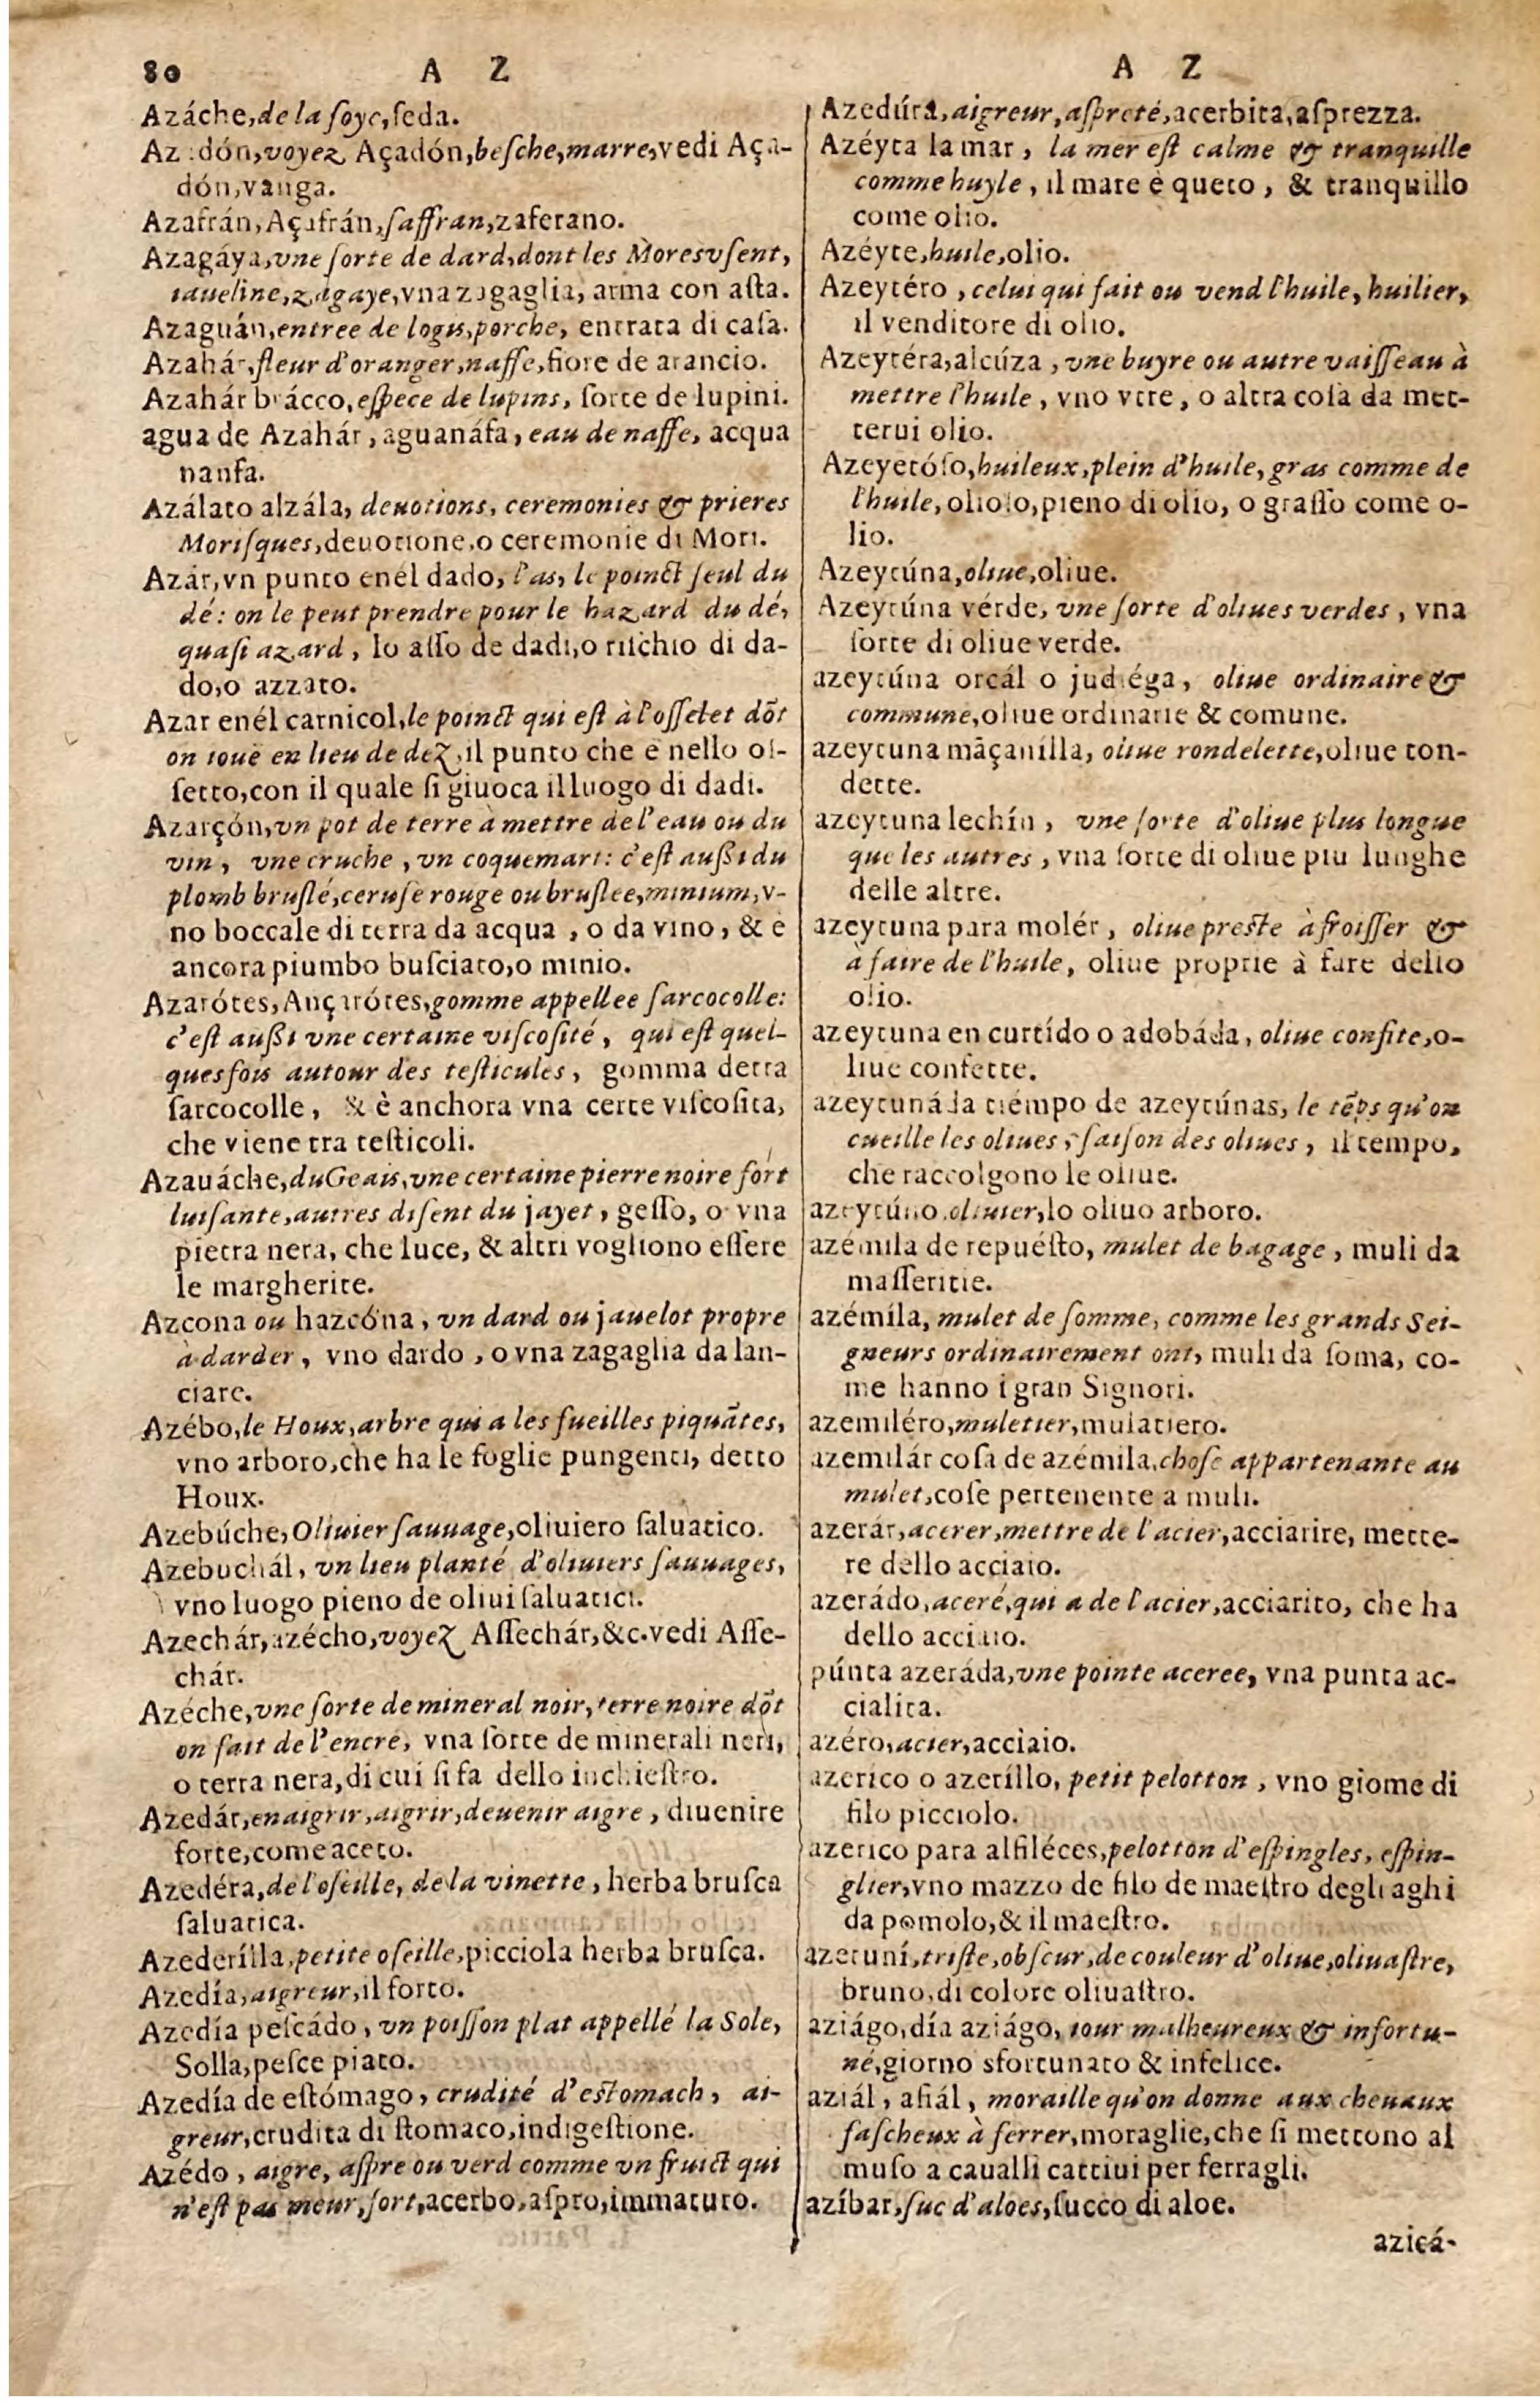 80 A Z
Azáche, de la ſoye, ſeda.
Az dón, voyez Açadón, beſche, marre, vedi Aça-
dón, vanga.
Azafrán, Açafrán, ſaffran, zaferano.
Azagáya, vne ſorte de dard, dont les Mores vſent,
iaueline, zagaye, vna zagaglia, arma con aſta.
Azaguán, entree de logis, porche, entrata di caſa.
Azahár, fleur d'oranger, naffe, fiore de arancio.
Azahár brácco, eſpece de lupins, ſorte de lupini.
agua de Azahár, aguanáfa, eau de naffe, acqua
nanfa.
Azálato alzála, deuotions, ceremonies & prieres
Moriſques, deuotione, o ceremonie di Mori.
Azár, vn punto enél dado, l'as, le poinct ſeul du
dé: on le peut prendre pour le hazard du dé,
quaſi azard, lo aſſo de dadi, o riſchio di da-
do, o azzato.
Azar enél carnicol, le poinct qui eſt à l'oſſelet dõt
on iouë en lieu de dez, il punto che è nello oſ-
ſetto, con il quale ſi giuoca il luogo di dadi.
Azarçón, vn pot de terre à mettre de l'eau ou du
vin, vne cruche, vn coquemart: c'eſt außi du
plomb bruſlé, ceruſe rouge ou bruſlee, minium, v-
no boccale di terra da acqua, o da vino, & è
ancora piumbo buſciato, o minio.
Azarótes, Ançarótes, gomme appellee ſarcocolle:
c'eſt außi vne certaine viſcoſité, qui eſt quel-
quesfois autour des teſticules, gomma detta
ſarcocolle, & è anchora vna certe viſcoſita,
che viene tra teſticoli.
Azauáche, du Geais, vne certaine pierre noire fort
luiſante, autres diſent du jayet, geſſo, o vna
pietra nera, che luce, & altri vogliono eſſere
le margherite.
Azcona ou hazcóna, vn dard ou jauelot propre
à darder, vno dardo, o vna zagaglia da lan-
ciare.
Azébo, le Houx, arbre qui a les fueilles piquãtes,
vno arboro, che ha le foglie pungenti, detto
Houx.
Azebúche, Oliuier ſauuage, oliuiero ſaluatico.
Azebuchál, vn lieu planté d'oliuiers ſauuages,
vno luogo pieno de oliui ſaluatici.
Azechár, azécho, voyez Aſſechár, &c. vedi Aſſe-
chár.
Azéche, vne ſorte de mineral noir, terre noire dõt
on fait de l'encre, vna ſorte de minerali neri,
o terra nera, di cui ſi fa dello inchieſtro.
Azedár, enaigrir, aigrir, deuenir aigre, diuenire
forte, come aceto.
Azedéra, de l'oſeille, de la vinette, herba bruſca
ſaluatica.
Azederílla, petite oſeille, picciola herba bruſca.
Azedía, aigreur, il forto.
Azedía peſcádo, vn poiſſon plat appellé la Sole,
Solla, peſce piato.
Azedía de eſtómago, crudité d'eſtomach, ai-
greur, crudita di ſtomaco, indigeſtione.
Azédo, aigre, aſpre ou verd comme vn fruict qui
n'eſt pas meur, ſort, acerbo, aſpro, immaturo.
A Z
Azedúra, aigreur, aſpreté, acerbita, aſprezza.
Azéyta la mar, la mer eſt calme & tranquille
comme huyle, il mare è queto, & tranquillo
come olio.
Azéyte, huile, olio.
Azeytéro, celui qui fait ou vend l'huile, huilier,
il venditore di olio.
Azeytéra, alcúza, vne buyre ou autre vaiſſeau à
mettre l'huile, vno vtre, o altra coſa da met-
terui olio.
Azeyetóſo, huileux, plein d'huile, gras comme de
l'huile, olioſo, pieno di olio, o graſſo come o-
lio.
Azeytúna, oliue, oliue.
Azeytúna vérde, vne ſorte d'oliues verdes, vna
ſorte di oliue verde.
azeytúna orcál o judiéga, oliue ordinaire &
commune, oliue ordinarie & comune.
azeytuna mãçanílla, oliue rondelette, oliue ton-
dette.
azeytuna lechín, vne ſorte d'oliue plus longue
que les autres, vna ſorte di oliue piu lunghe
delle altre.
azeytuna para molér, oliue preſte à froiſſer &
à faire de l'huile, oliue proprie à fare dello
olio.
azeytuna en curtído o adobáda, oliue confite, o-
liue confette.
azeytunáda tiémpo de azeytúnas, le tẽps qu'on
cueille les oliues, ſaiſon des oliues, il tempo,
che raccolgono le oliue.
azeytúno, oliuier, lo oliuo arboro.
azémila de repuéſto, mulet de bagage, muli da
maſſeritie.
azémíla, mulet de ſomme, comme les grands Sei-
gneurs ordinairement ont, muli da ſoma, co-
me hanno i gran Signori.
azemiléro, muletier, mulatiero.
azemilár coſa de azémila, choſe appartenante au
mulet, coſe pertenente a muli.
azerár, acerer, mettre de l'acier, acciarire, mette-
re dello acciaio.
azerádo, aceré, qui a de l'acier, acciarito, che ha
dello acciaio.
púnta azeráda, vne pointe aceree, vna punta ac-
cialita.
azéro, acier, acciaio.
azerico o azeríllo, petit pelotton, vno giome di
filo picciolo.
azerico para alfiléces, pelotton d'eſpingles, eſpin-
glier, vno mazzo de filo de maeſtro degli aghi
da pomolo, & il maeſtro.
azetuní, triſte, obſcur, de couleur d'oliue, oliuaſtre,
bruno, di colore oliuaſtro.
aziágo, día aziágo, iour malheureux & infortu-
né, giorno sfortunato & infelice.
aziál, aſiál, moraille qu'on donne aux cheuaux
faſcheux à ferrer, moraglie, che ſi mettono al
muſo a caualli cattiui per ferragli.
azíbar, ſuc d'aloes, ſucco di aloe.
azicá-